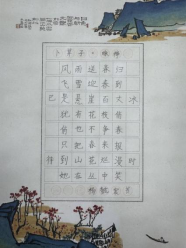 卜算子·咏梅
风雨送春归
飞雪迎春到
已是悬崖百丈冰
犹有花枝俏
俏也不争春
只把春来报
待到山花烂漫时
她在丛中笑